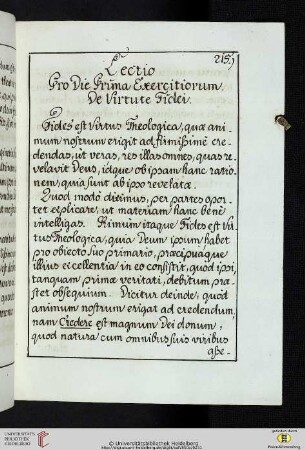 215.)
Lectio
Pro Die Prima Exercitiorum.
De Virtute Fidei.
Fides est Virtus Theologica, quæ ani-
mum nostrum erigit ad firmissimè cre-
dendas, ut veras, res illas omnes, quas re-
velavit Deus, idque ob ipsam hanc ratio-
nem, quia sunt ab ipso revelatæ.
Quod modo diximus, per partes opor-
tet explicare, ut materiam hanc bene
intelligas. Primum itaque Fides est Vir-
tus Theologica, quia Deum ipsum habet
pro obiecto suo primario, præcipuaque
illius excellentia in eo consistit, quod ipsi,
tanquam primæ veritati, debitum præ-
stet obsequium. Dicitur deinde, quod
animum nostrum erigat ad credendum,
nam Credere est magnum Dei donum,
quod natura cum omnibus suis viribus
asse-
UNIVERSITÄTS-
BIBLIOTHEK
HEIDELBERG
© Universitätsbibliothek Heidelberg